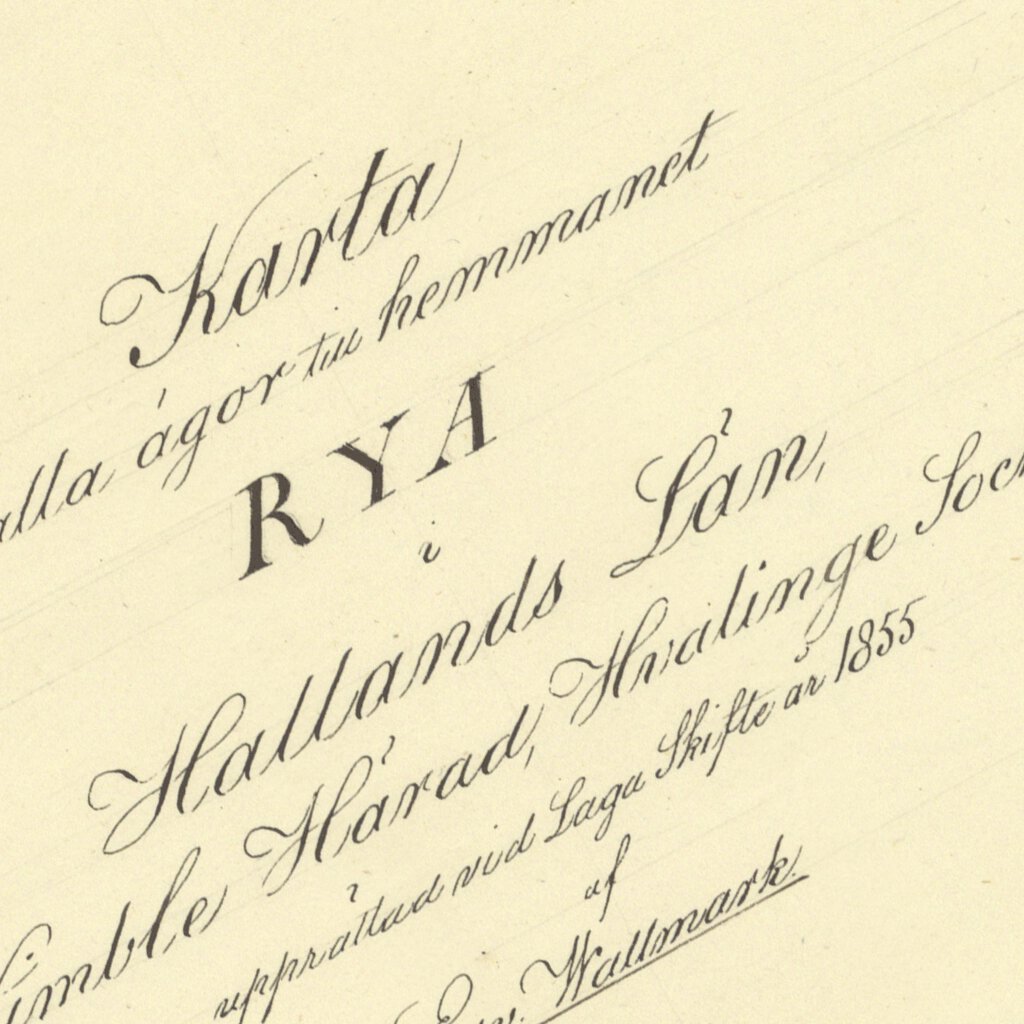 Karta
alla ägor till hemmanet
RYA
i
Hallands Län,
Himble Härad, Hvalinge Sock
upprättad vid Laga Skifte år 1855
af
Wallmark.